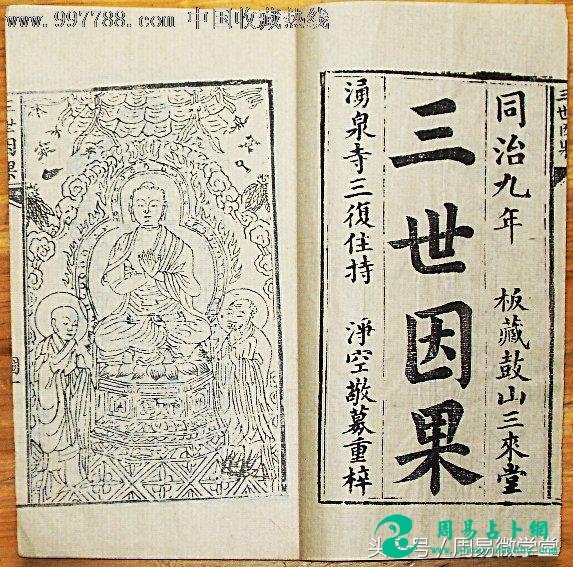 www.997788.com 中国收藏热线
同治九年 板藏鼓山三來堂
三世因果
湧泉寺三復住持 淨空敬募重梓
三世因果
三世因果
圖一
周易占卜網
头条号/周易微学堂